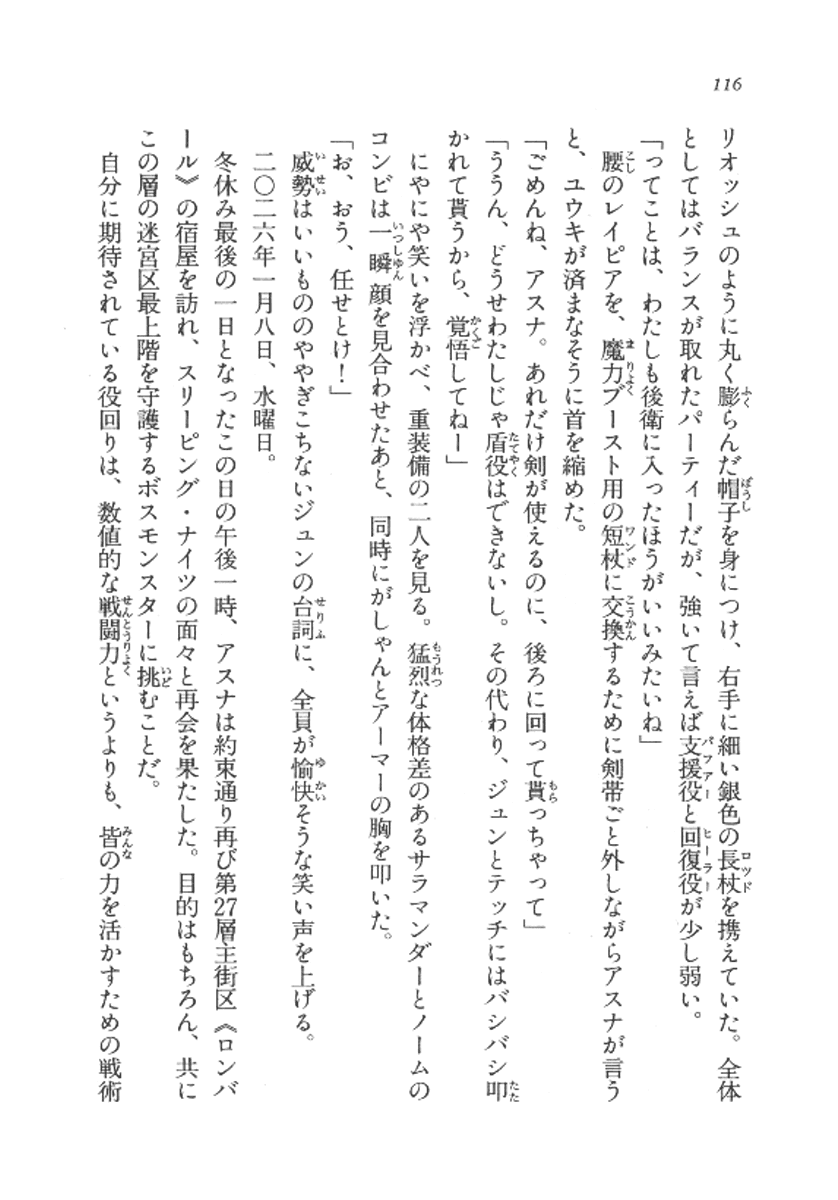 116
リオッシュのように丸く膨らんだ帽子を身につけ、右手に細い銀色の長杖を携えていた。全体
としてはバランスが取れたパーティーだが、強いて言えば支援役と回復役が少し弱い。
「ってことは、わたしも後衛に入ったほうがいいみたいね」
腰のレイピアを、魔力ブースト用の短杖に交換するために剣帯ごと外しながらアスナが言う
と、ユウキが済まなそうに首を縮めた。
「ごめんね、アスナ。あれだけ剣が使えるのに、後ろに回って貰っちゃって」
「ううん、どうせわたしじゃ盾役はできないし。その代わり、ジュンとテッチにはバシバシ叩
かれて貰うから、覚悟してねー」
にやにや笑いを浮かべ、重装備の二人を見る。猛烈な体格差のあるサラマンダーとノームの
コンビは一瞬顔を見合わせたあと、同時にがしゃんとアーマーの胸を叩いた。
「お、おう、任せとけ！」
威勢はいいもののややぎこちないジュンの台詞に、全員が愉快そうな笑い声を上げる。
二〇二六年一月八日、水曜日。
冬休み最後の一日となったこの日の午後一時、アスナは約束通り再び第27層主街区《ロンバ
ール》の宿屋を訪れ、スリーピング・ナイツの面々と再会を果たした。目的はもちろん、共に
この層の迷宮区最上階を守護するボスモンスターに挑むことだ。
自分に期待されている役回りは、数値的な戦闘力というよりも、皆の力を活かすための戦術